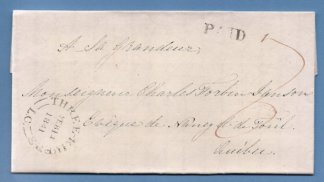 PAID
A Sa Grandeur
Monseigneur Charles Forbin Janson
Evêque de Nancy & de Toul
Québec
THREE-RIVERS L.C.
1841